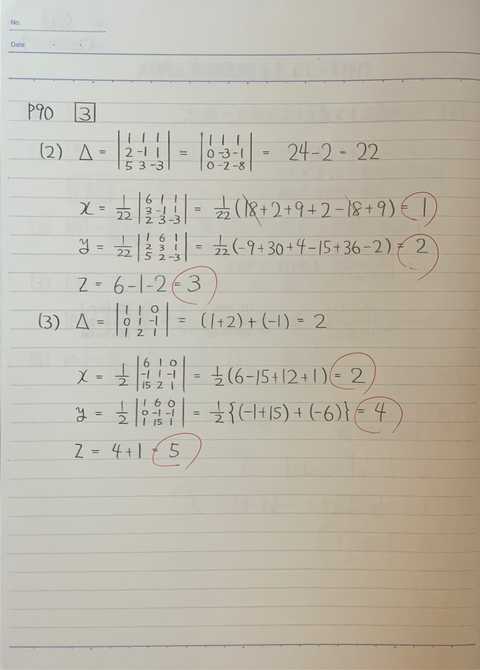 No.
Date
P90 3
(2) Δ = |1 1 1; 2 -1 1; 5 3 -3| = |1 1 1; 0 -3 -1; 0 -2 -8| = 24-2 = 22
x = 1/22 |6 1 1; 3 -1 1; 2 3 -3| = 1/22 (18+2+9+2-18+9) = 1
y = 1/22 |1 6 1; 2 3 1; 5 2 -3| = 1/22 (-9+30+4-15+36-2) = 2
Z = 6-1-2 = 3
(3) Δ = |1 1 0; 0 1 -1; 1 2 1| = (1+2)+(-1) = 2
x = 1/2 |6 1 0; -1 1 -1; 15 2 1| = 1/2 (6-15+12+1) = 2
y = 1/2 |1 6 0; 0 -1 -1; 1 15 1| = 1/2 {(-1+15)+(-6)} = 4
Z = 4+1 = 5